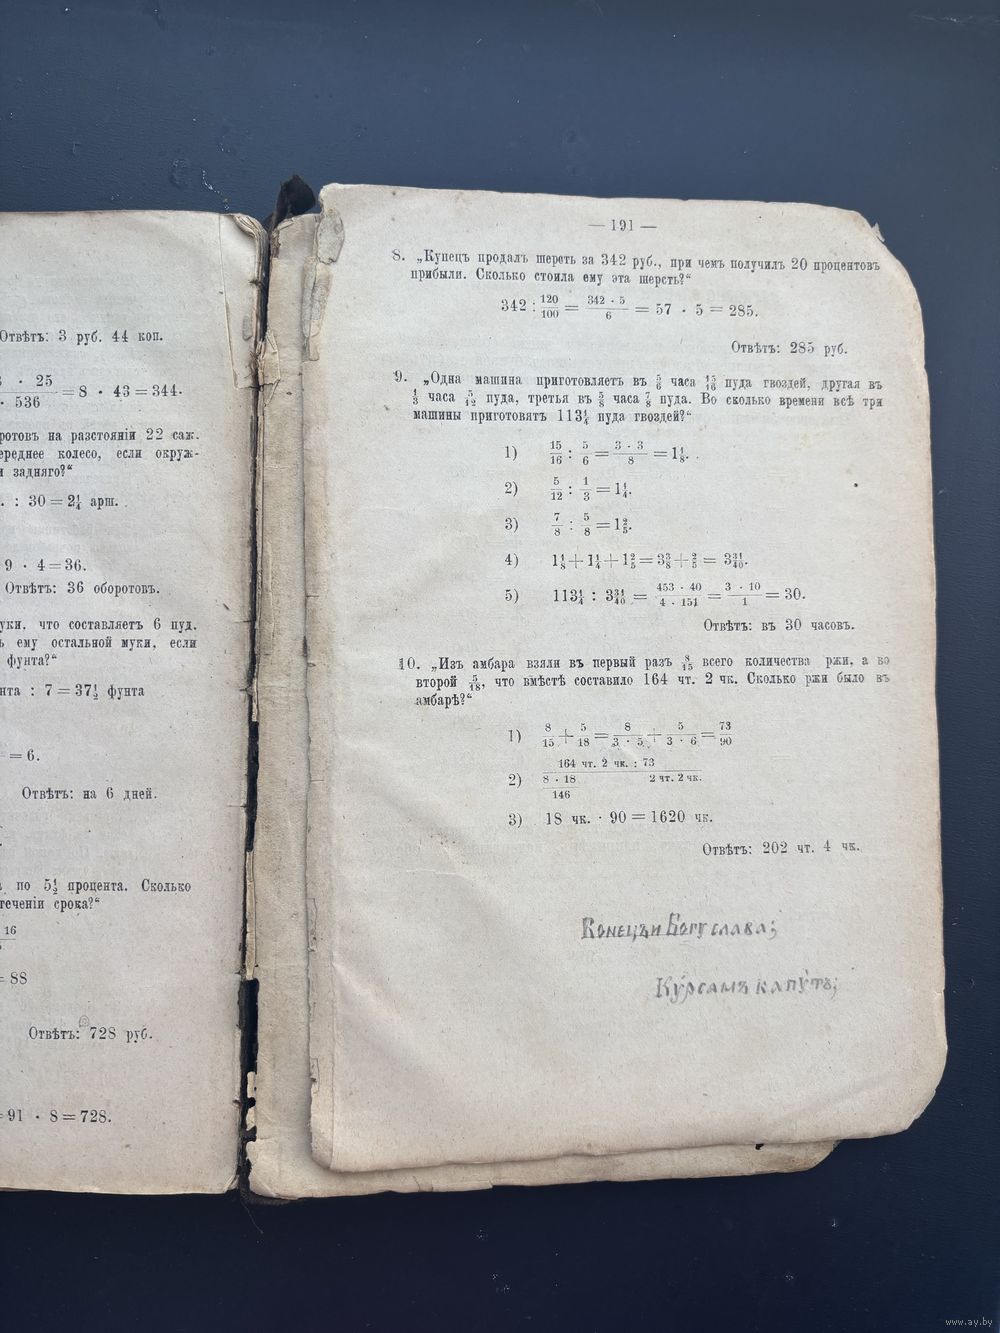 Отвѣтъ: 3 руб. 44 коп.
· 25
· 536
= 8 · 43 = 344.
ротовъ на разстояніи 22 саж.
ереднее колесо, если окруж-
и задняго?“
. : 30 = 2¼ арш.
9 · 4 = 36.
Отвѣтъ: 36 оборотовъ.
уки, что составляетъ 6 пуд.
ь ему остальной муки, если
фунта?“
нта : 7 = 37½ фунта
= 6.
Отвѣтъ: на 6 дней.
по 5½ процента. Сколько
теченіи срока?“
16
= 88
Отвѣтъ: 728 руб.
= 91 · 8 = 728.
— 191 —
8. „Купецъ продалъ шереть за 342 руб., при чемъ получилъ 20 процентовъ
прибыли. Сколько стоила ему эта шерсть?“
342 : 120/100 = 342 · 5/6 = 57 · 5 = 285.
Отвѣтъ: 285 руб.
9. „Одна машина приготовляетъ въ 5/6 часа 15/16 пуда гвоздей, другая въ
1/3 часа 5/12 пуда, третья въ 5/8 часа 7/8 пуда. Во сколько времени всѣ три
машины приготовятъ 113¼ пуда гвоздей?“
1) 15/16 : 5/6 = 3 · 3/8 = 1⅛.
2) 5/12 : 1/3 = 1¼.
3) 7/8 : 5/8 = 1⅖.
4) 1⅛ + 1¼ + 1⅖ = 3⅜ + ⅖ = 3 31/40.
5) 113¼ : 3 31/40 = 453 · 40/4 · 151 = 3 · 10/1 = 30.
Отвѣтъ: въ 30 часовъ.
10. „Изъ амбара взяли въ первый разъ 8/15 всего количества ржи, а во
второй 5/18, что вмѣстѣ составило 164 чт. 2 чк. Сколько ржи было въ
амбарѣ?“
1) 8/15 + 5/18 = 8/3 · 5 + 5/3 · 6 = 73/90
2) 164 чт. 2 чк. : 73
8 · 18 2 чт. 2 чк.
146
3) 18 чк. · 90 = 1620 чк.
Отвѣтъ: 202 чт. 4 чк.
Конецъ и Богу слава;
Ку́рсамъ капу́тъ;
www.ay.by